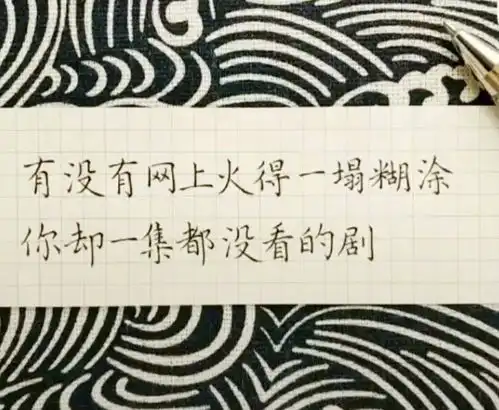 有没有网上火得一塌糊涂
你却一集都没看的剧